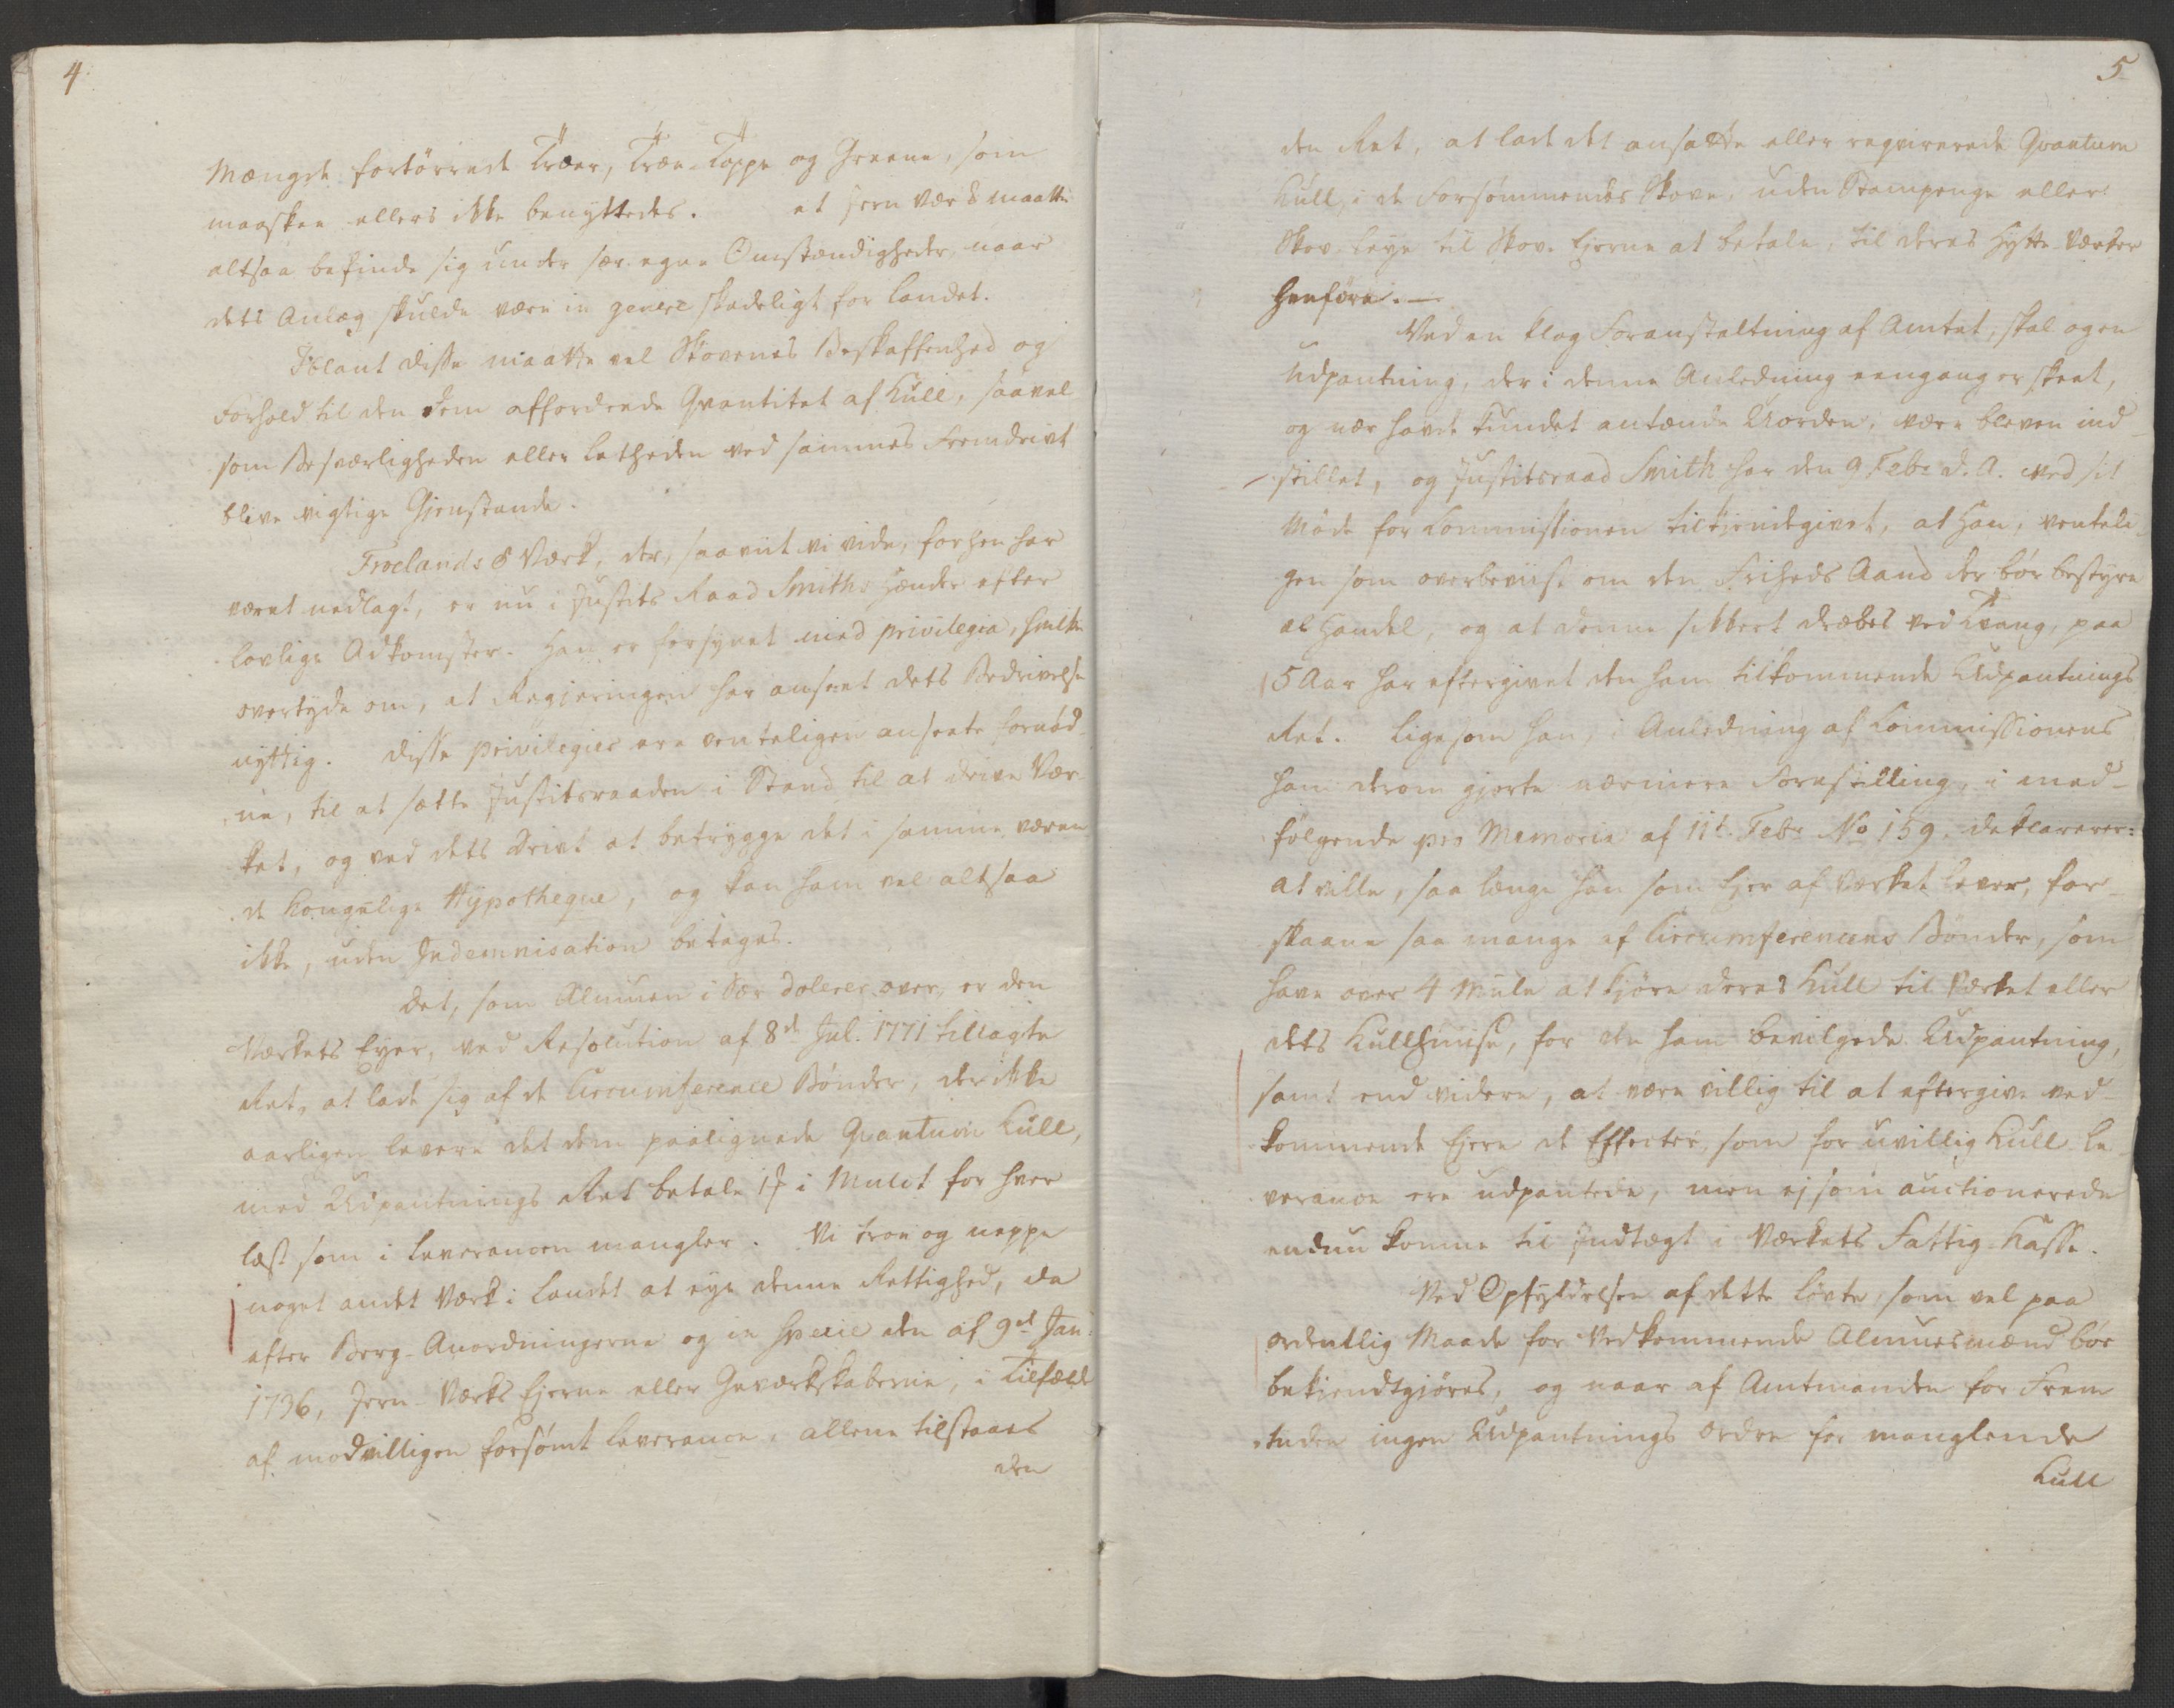 4.
Mængde fortörrede Træer, Træe-Toppe og Greene, som
maaskee ellers ikke benyttedes. et Jern Værk maatte
altsaa befinde sig under sær egne Omstændigheder, naar
dets Anlæg skulde være in genere skadeligt for Landet.
Iblant disse maatte vel Skovenes Beskaffenhed og
Forhold til den dem affordrede Qvantitet af Kull, saavel
som Besværligheden eller Letheden ved sammes Fremdrivt
blive vigtige Gjenstande.
Froelands Værk, der, saavit vi vide, forhen har
været nedlagt, er nu i Justits Raad Smiths Hænder efter
lovlige Adkomster. Han er forsynet med privilegia, hvilke
overtyde om, at Regjeringen har anseet dets Bedrivelse
nyttig. Disse privilegier ere venteligen anseete fornød
ne, til at sætte Justitsraaden i Stand til at drive Vær
ket, og ved dets Drivt at betrygge det i samme væren
de Kongelige Hypotheque, og kan ham vel altsaa
ikke, uden Indemnisation betages.
Det, som Almuen i Sær dolerer over, er den
Værkets Eyer, ved Resolution af 8de Jul. 1771 tillagte
Ret, at lade sig af de Circumference Bönder, der ikke
aarligen levere det dem paalignede Qvantum Kull,
med Udpantnings Ret betale 1 i Mulct for hver
Læst som i Leverancen mangler. Vi troe og neppe
noget andet Værk i Landet at eye denne Rettighed, da
efter Berg-Anordningerne og in Specie den af 9de Jan:
1736, Jern-Værks Ejerne eller Gewærkskaberne, i Tilfælde
af modvilligen forsömt Leverance, allene tilstaaes
den
5
den Ret, at lade det ansatte eller reqvirerede Qvantum
Kull, i de Forsömmendes Skove, uden Stampenge eller
Skov-Leye til Skov-Ejerne at betale, til deres Hytte-Værker
henføre. —
Ved en klog Foranstaltning af Amtet, skal og en
Udpantning, der i denne Anledning eengang er skeet,
og nær havde kundet antænde Uorden, være bleven ind
stillet, og Justitsraad Smith har den 9 Febr d. A. ved sit
Möde for Commissionen tilkjendegivet, at Han, venteli
gen som overbeviist om den Friheds Aand der bör bestyre
al Handel, og at denne sikkert dræbes ved Tvang, paa
5 Aar har eftergivet den ham tilkommende Udpantnings
Ret. Ligesom han, i Anledning af Commissionens
ham derom gjorte nærmere Forestilling, i med-
fölgende pro Memoria af 11te Febr No 159. declarerer:
at ville, saa længe han som Ejer af Værket lever, for-
skaane saa mange af Circumferencens Bönder, som
have over 4 Mile at kjöre deres Kull til Værket eller
dets Kullhuuse, for den ham bevilgede Udpantning,
samt end videre, at være villig til at eftergive ved-
kommende Ejere de Effecter, som for uvillig Kull Le
verance ere udpantede, men ej som auctionerede
endnu komne til Indtægt i Værkets Fattig-Kasse.
Ved Opfyldelsen af dette Lövte, som vel paa
ordentlig Maade for Vedkommende Almuesmænd bör
bekjendtgjöres, og naar af Amtmanden for Frem
tiden ingen Udpantnings Ordre for manglende
Kull